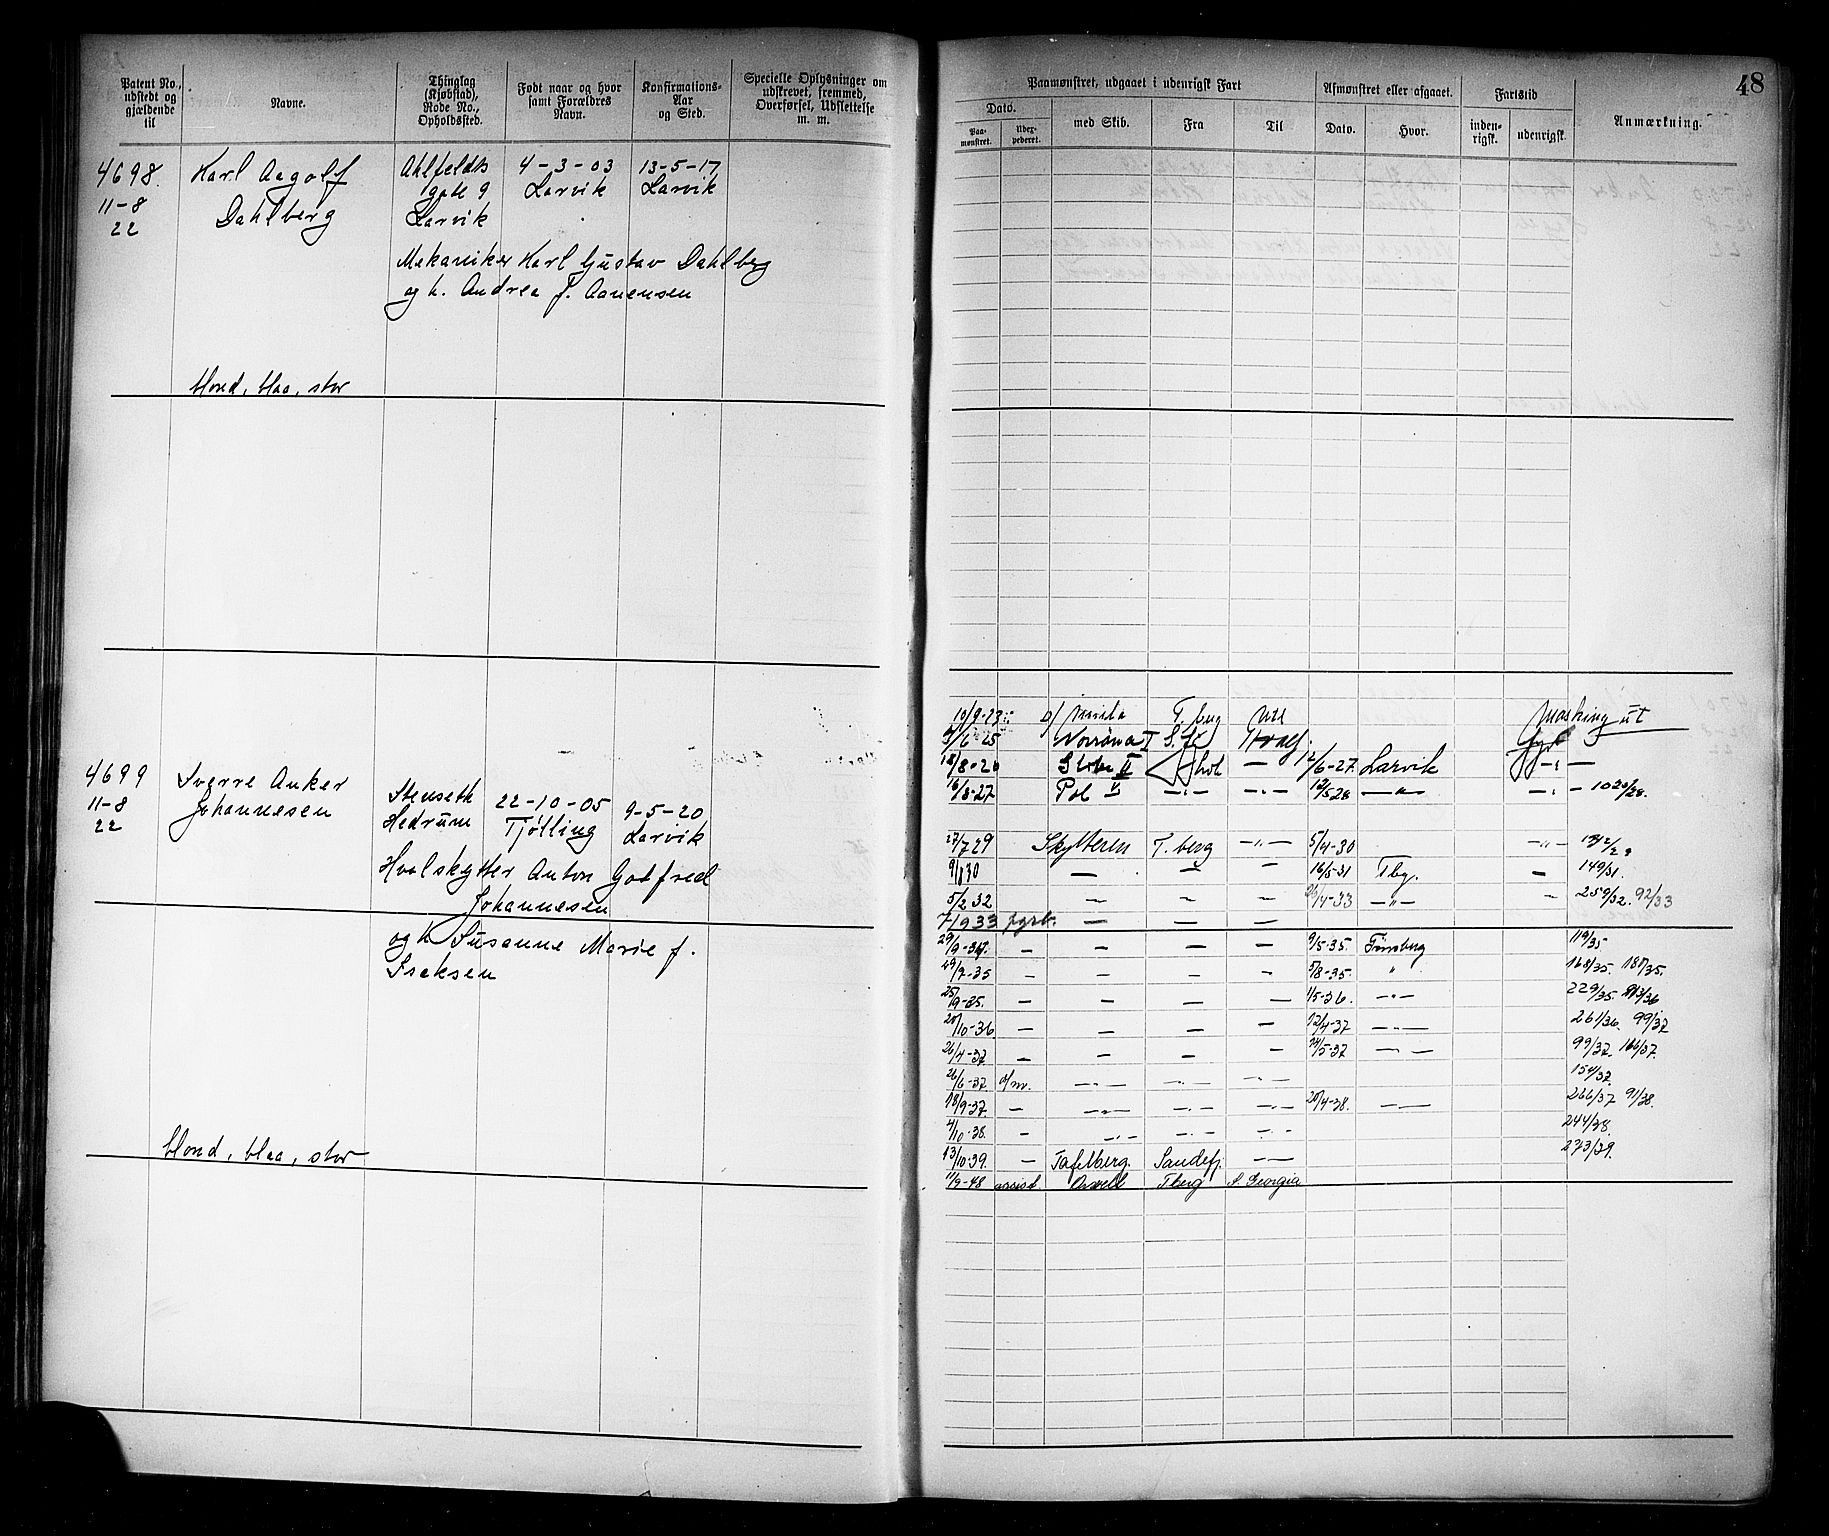 Patent No., udstedt og gjældende til
Navne.
Thinglag (Kjøbstad), Rode No., Opholdssteb.
Født naar og hvor samt Forældres Navn.
Konfirmations-Aar og Sted.
Specielle Oplysninger om udskrevet, fremmed, Overførsel, Udslettelse m. m.
4698. 11-8 22
Karl Aagolf Dahlberg
Ahlfeldts gate 9 Larvik
4-3-03 Larvik
13-5-17 Larvik
Mekaniker Karl Gustav Dahlberg
og h. Andrea f. Aanensen
blond, blaa, stor
4699 11-8 22
Sverre Anker Johannesen
Stenseth Hedrum
22-10-05 Tjølling
9-5-20 Larvik
Hvalskytter Anton Godfred
Johannesen
og h. Susanne Marie f.
Isaksen
blond, blaa, stor
48
Paamønstret, udgaaet i udenrigsk Fart
Afmønstret eller afgaaet.
Fartstid
Anmærkning.
Dato.
Paa-mønstret.
Uder-pederet.
med Skib.
Fra
Til
Dato.
Hvor.
inden-rigsk.
udenrigsk.
10/9-23 D/ T. berg
/6 25 Norrøna I S. fj.
/8-26 II 12/6-27. Larvik
16/8-27 Pol V -"- -"- 12/5 28 -"- -"-
27/7 29 Skytteren T. berg -"- 5/4-30 -"-
9/ 30 — — — 16/5-31 Tbg. — 149/31.
5/2 32 — — — /4-33 -"- — 259/32. 92/33
7/9 33 — —
29/9-34. — — — — 9/5-35. Tønsberg 119/35
29/7-35 — — — — 5/8-35. " 168/35. 187/35.
25/9-35. — — — — 1/5-36. -"- 229/35. 213/36
20/10-36 — — — — 12/4-37 -"- 261/36. 99/37
26/4-37 — — — — 24/5-37 -"- 99/37. 166/37.
26/6-37. -"- -"- -"- 154/37.
18/9-37. — -"- -"- -"- 20/4-38. -"- 266/37 91/38.
4/10-38. — -"- -"- -"- 244/38.
13/10-39. — Tafelberg. Sandefj. -"- 273/39.
11/9-48 assist. Tberg S. Georgia